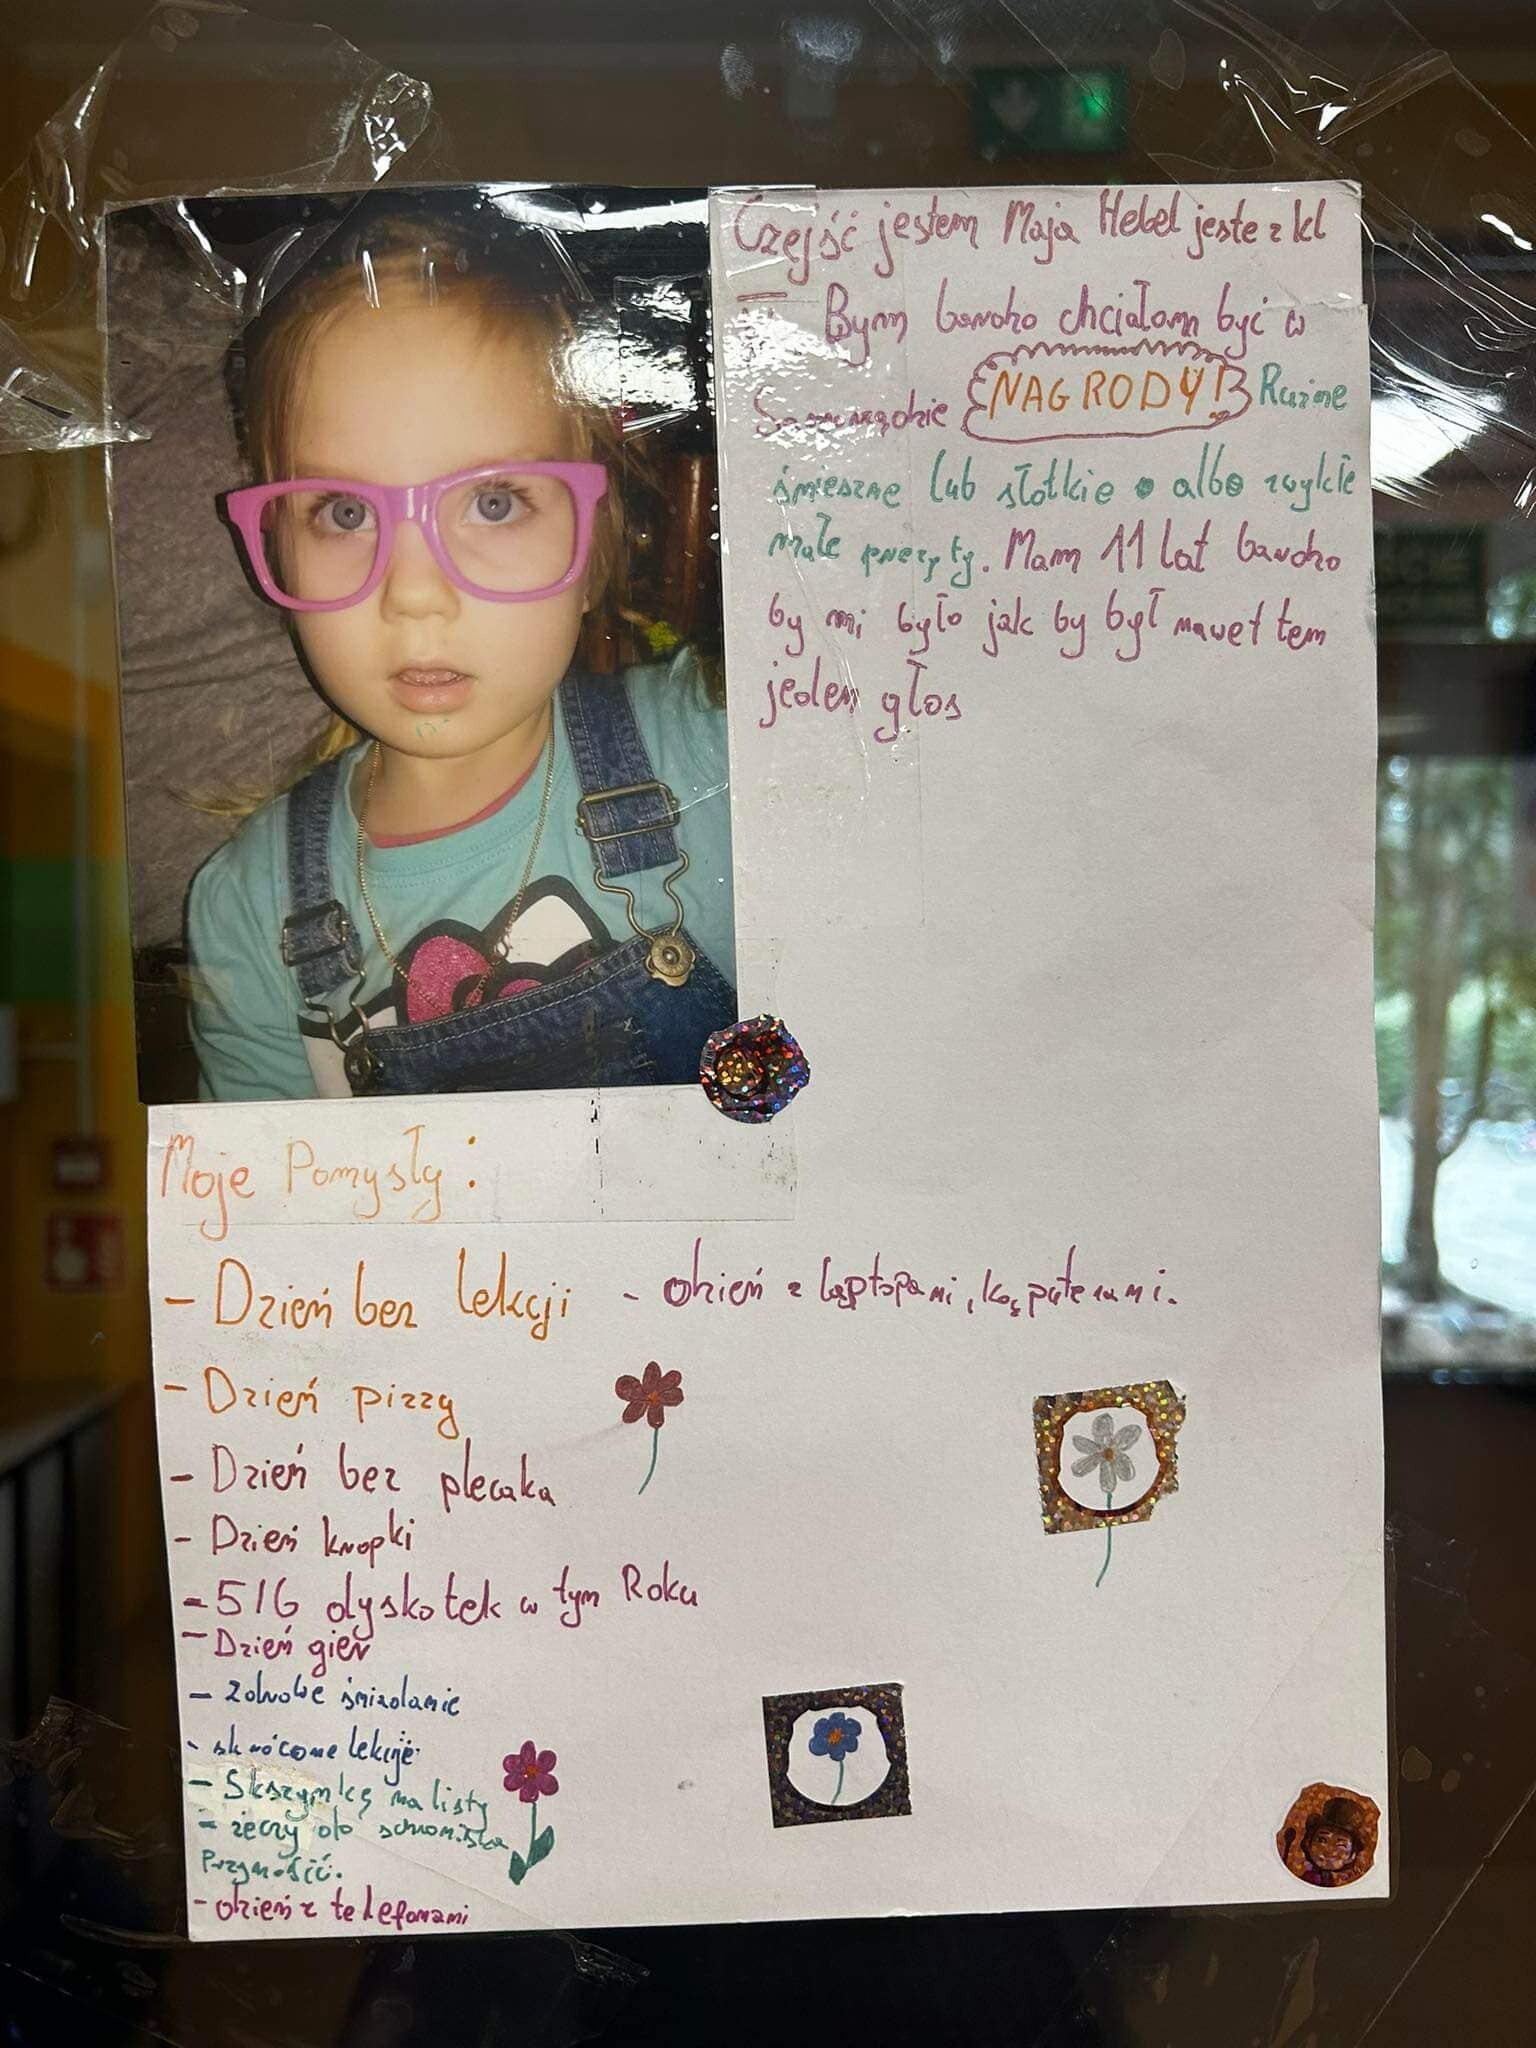 Czejść jestem Maja Hebel jeste z kl
Bym bardzo chciałam być w
Samorządzie NAGRODY! Ruzne
śmieszne lub słotkie albo zwykłe
małe prezęty. Mam 11 lat bardzo
by mi było jak by był nawet ten
jeden głos
Moje Pomysły:
- Dzień bez lekcji - dzień z ląptopami,
- Dzień pizzy
- Dzień bez plecaka
- Dzień kropki
- 5/6 dyskotek w tym Roku
- Dzień gier
- zdrowe śniadanie
- skrócone lekcje
- Skszynkę na listy
- zeczy do schroniska
Przynośić.
- dzień z telefonami